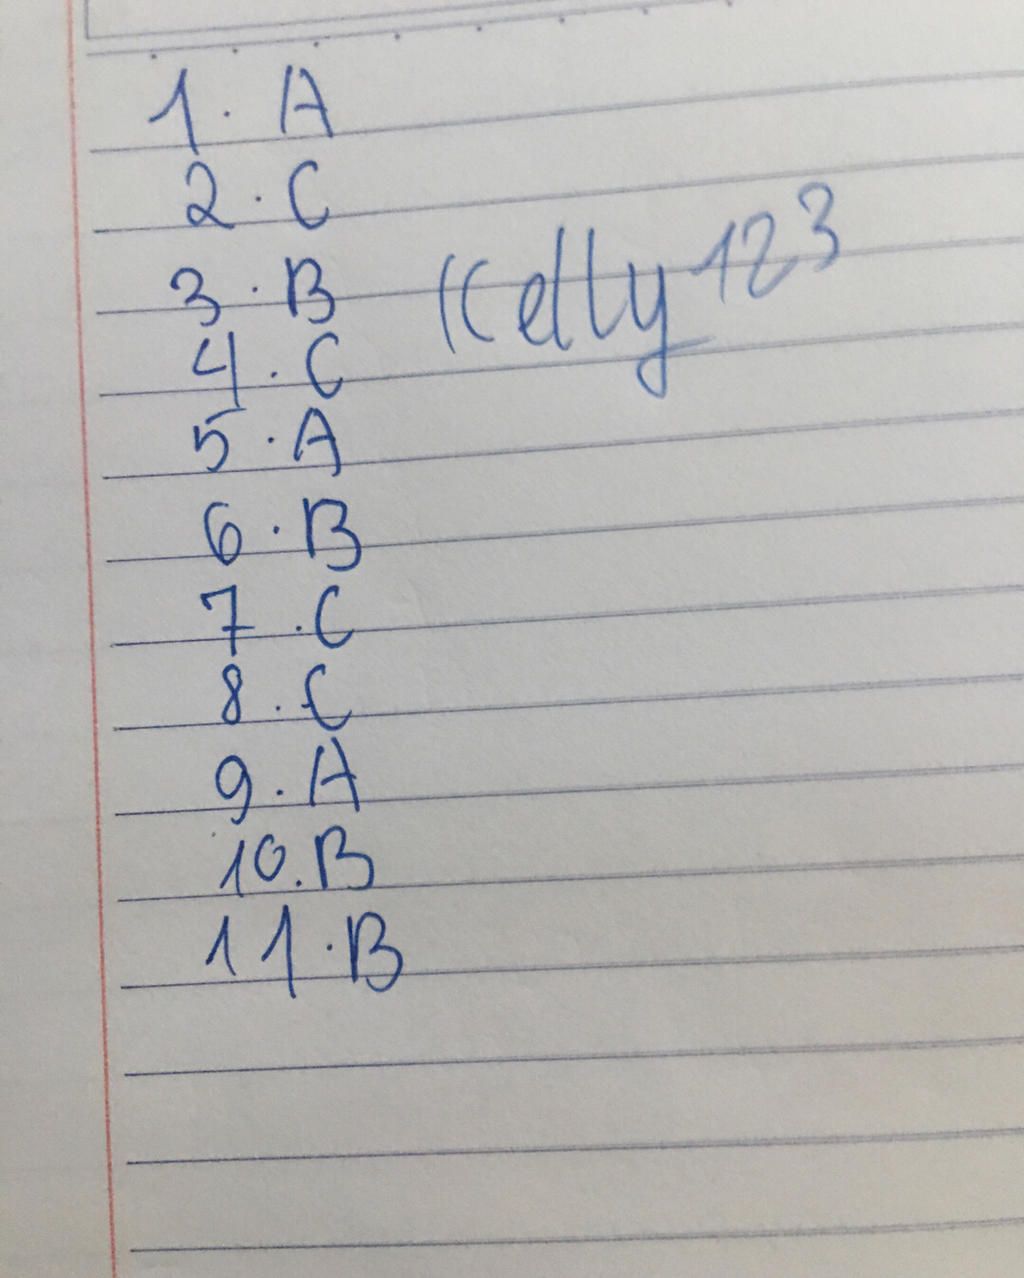 1. A
2. C
3. B
Kelly 123
4. C
5. A
6. B
7. C
8. C
9. A
10. B
11. B